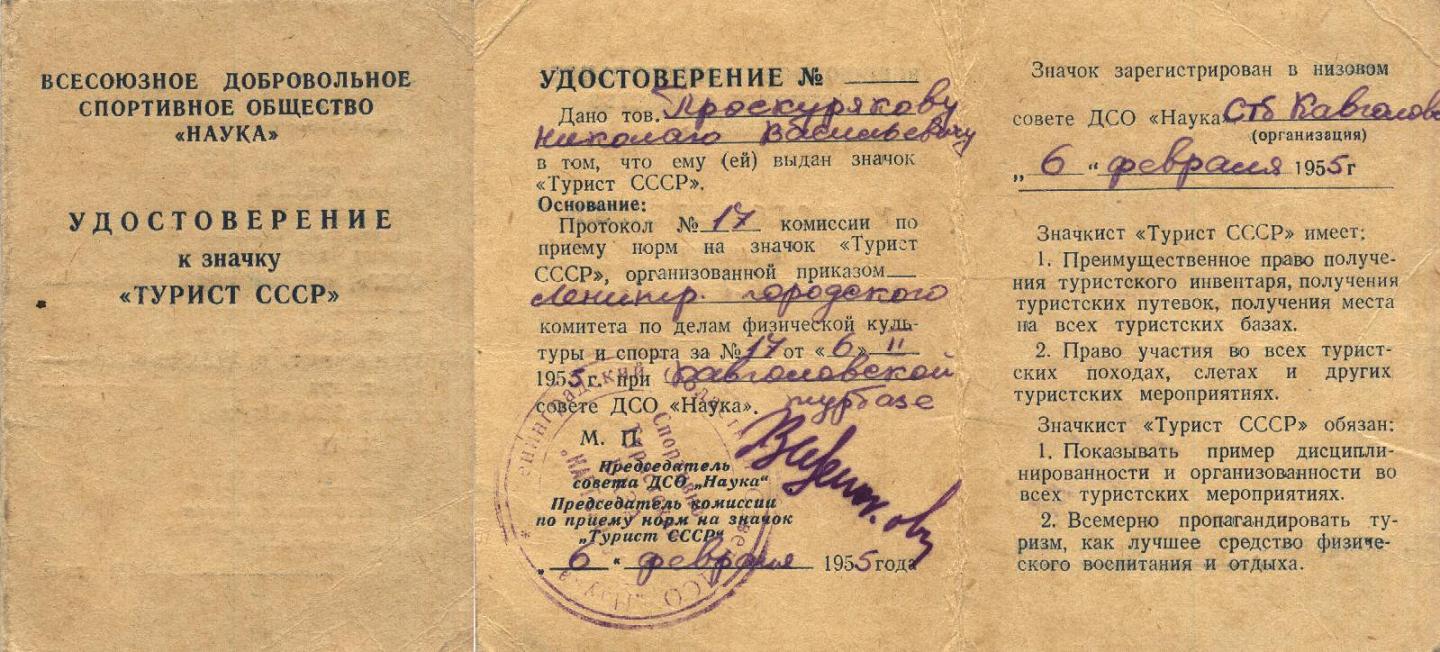 ВСЕСОЮЗНОЕ ДОБРОВОЛЬНОЕ
СПОРТИВНОЕ ОБЩЕСТВО
«НАУКА»
УДОСТОВЕРЕНИЕ
к значку
«ТУРИСТ СССР»
УДОСТОВЕРЕНИЕ №
Дано тов. Проскурякову
Николаю Васильевичу
в том, что ему (ей) выдан значок
«Турист СССР».
Основание:
Протокол № 17 комиссии по
приему норм на значок «Турист
СССР», организованной приказом
Ленингр. городского
комитета по делам физической куль-
туры и спорта за № 17 от «6» II
1955 г. при Кавголовской
совете ДСО «Наука». турбазе
М. П.
Председатель
совета ДСО „Наука“
Председатель комиссии
по приему норм на значок
„Турист СССР“
„6“ февраля 1955 года
Значок зарегистрирован в низовом
совете ДСО «Наука» СТб Кавголово
(организация)
„6“ февраля 1955 г
Значкист «Турист СССР» имеет:
1. Преимущественное право получе-
ния туристского инвентаря, получения
туристских путевок, получения места
на всех туристских базах.
2. Право участия во всех турист-
ских походах, слетах и других
туристских мероприятиях.
Значкист «Турист СССР» обязан:
1. Показывать пример дисципли-
нированности и организованности во
всех туристских мероприятиях.
2. Всемерно пропагандировать ту-
ризм, как лучшее средство физиче-
ского воспитания и отдыха.